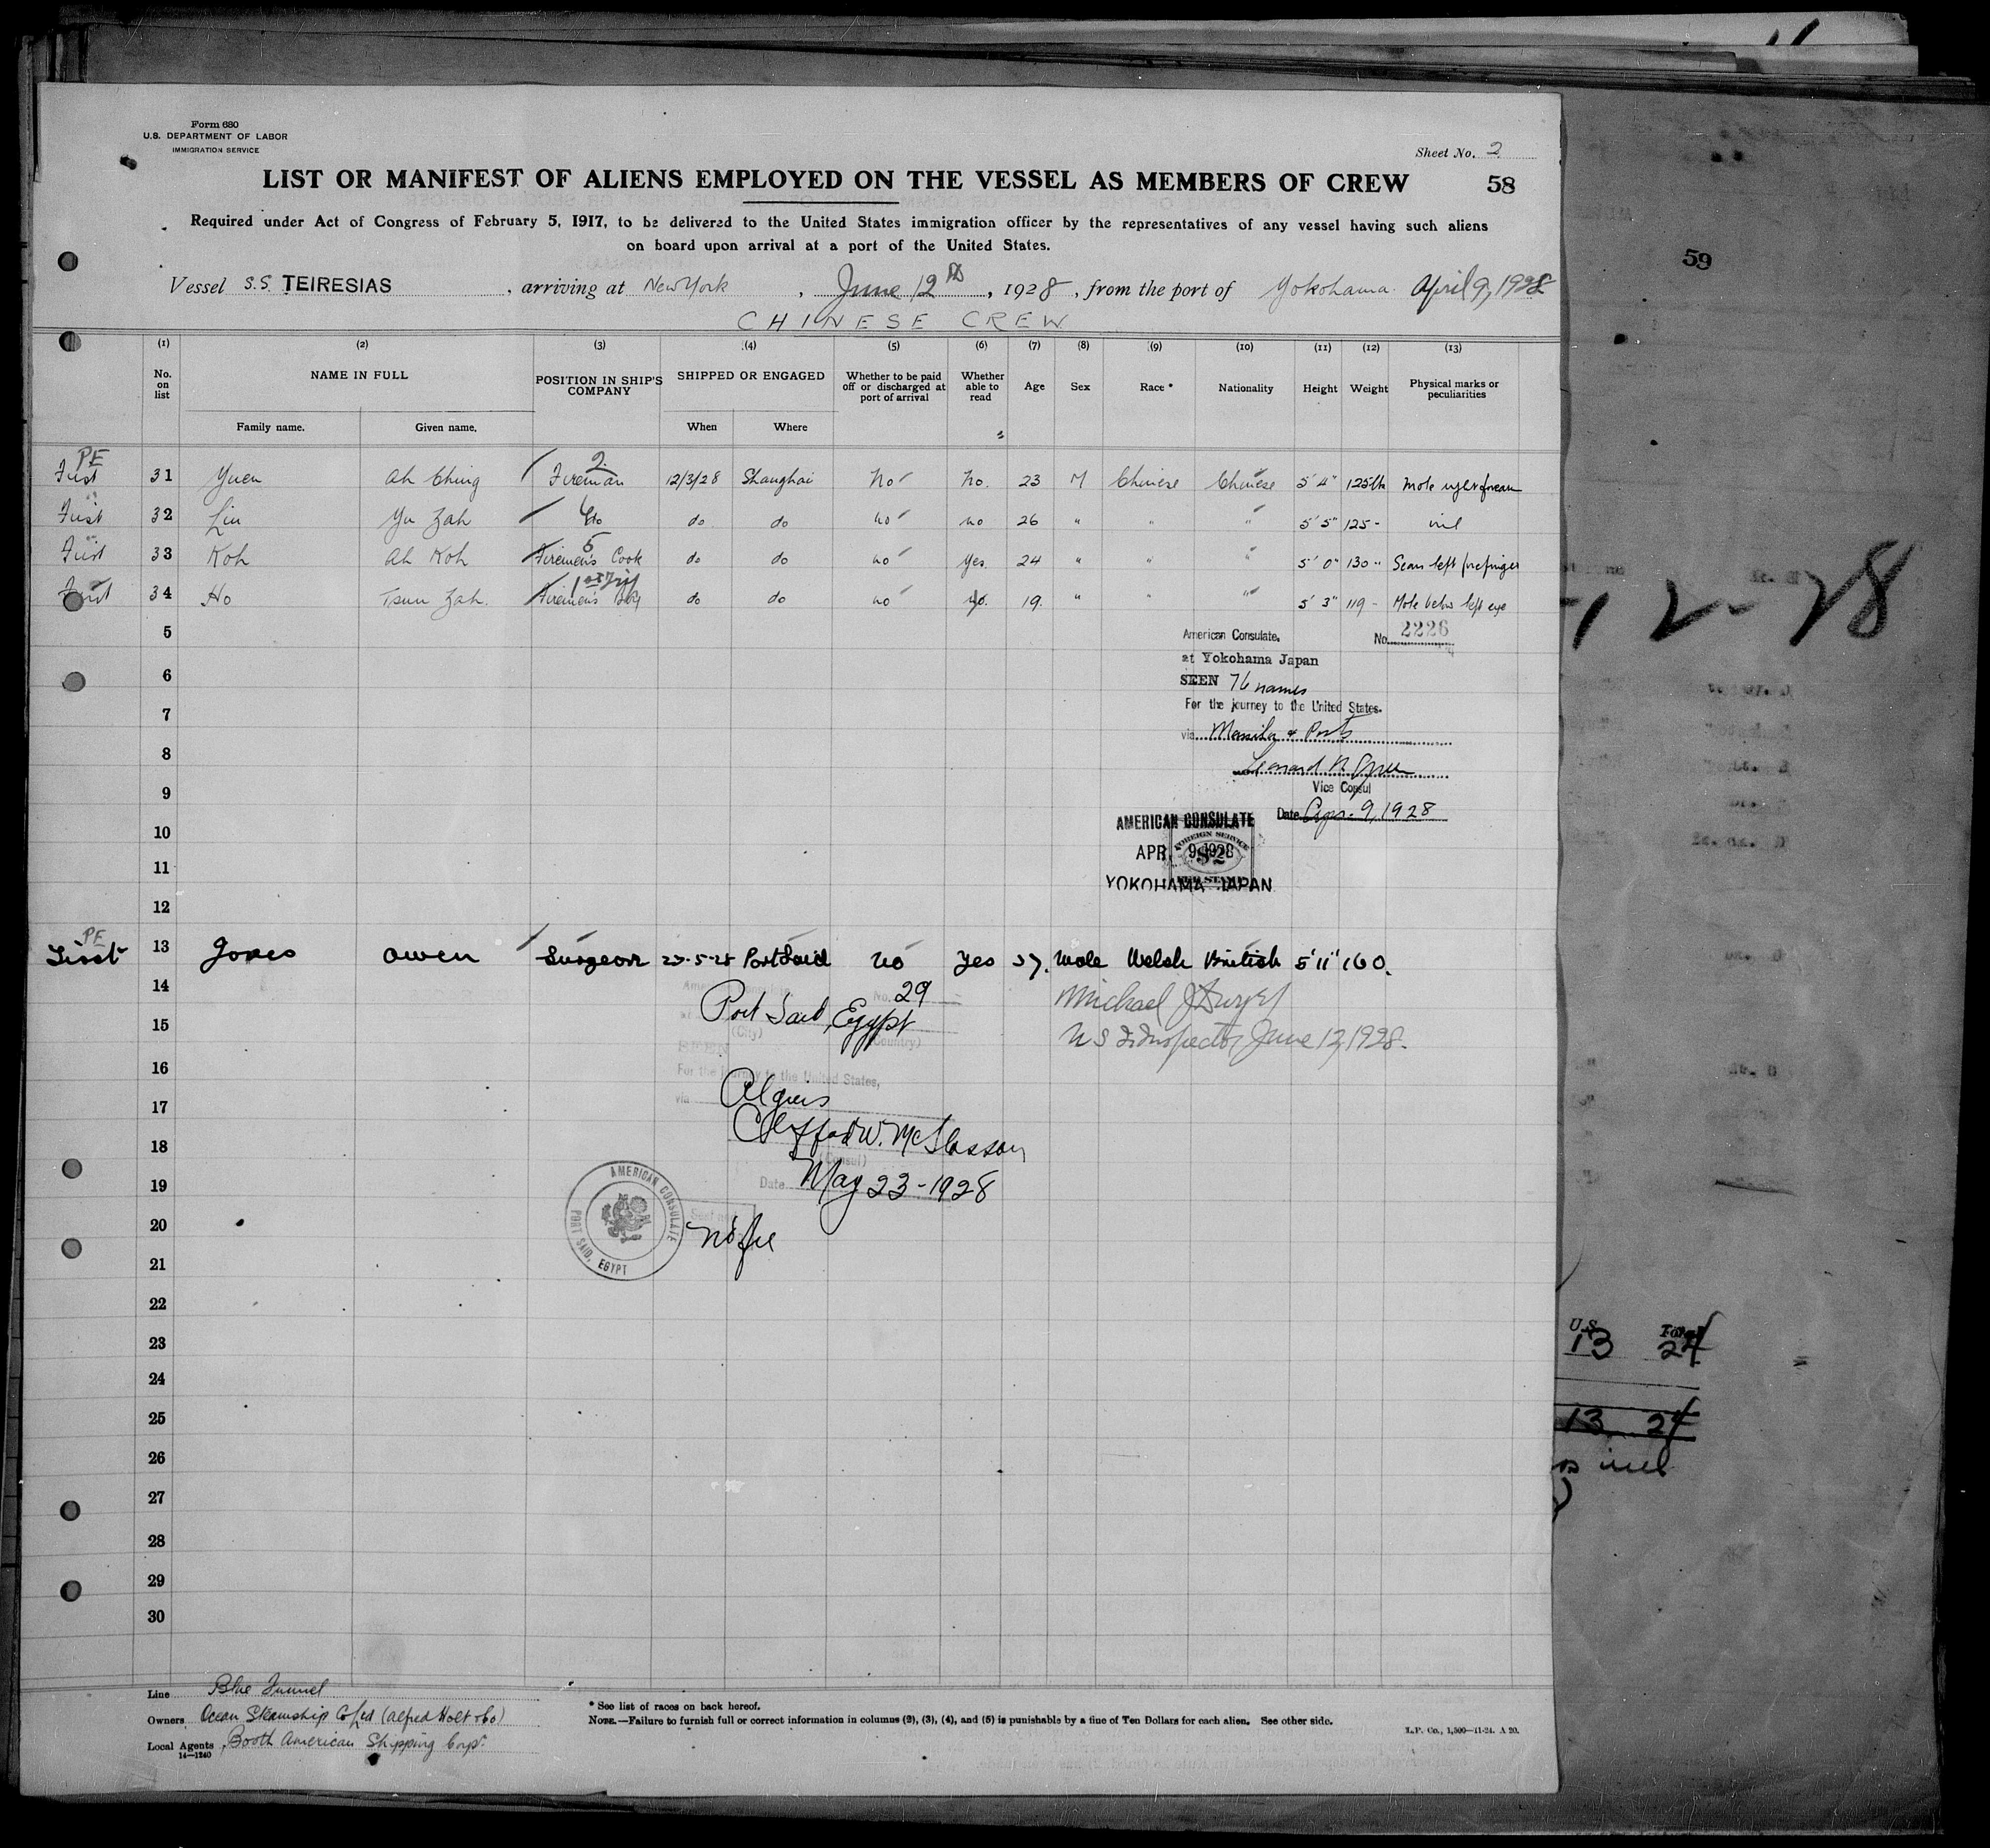 Form 680
U.S. DEPARTMENT OF LABOR
IMMIGRATION SERVICE
Sheet No. 2
LIST OR MANIFEST OF ALIENS EMPLOYED ON THE VESSEL AS MEMBERS OF CREW 58
Required under Act of Congress of February 5, 1917, to be delivered to the United States immigration officer by the representatives of any vessel having such aliens
on board upon arrival at a port of the United States.
59
Vessel S.S. TEIRESIAS, arriving at New York, June 12th, 1928, from the port of Yokohama April 9, 1928
CHINESE CREW
(1) (2) (3) (4) (5) (6) (7) (8) (9) (10) (11) (12) (13)
No. on list NAME IN FULL POSITION IN SHIP'S COMPANY SHIPPED OR ENGAGED Whether to be paid off or discharged at port of arrival Whether able to read Age Sex Race * Nationality Height Weight Physical marks or peculiarities
Family name. Given name. When Where
PE 2
First 31 Yuen Ah Ching Fireman 12/3/28 Shanghai No No. 23 M Chinese Chinese 5' 4" 125lbs Mole right forearm
First 32 Liu Yu Zah do do do no no 26 " " " 5' 5" 125 - nil
5
First 33 Koh Ah Koh Firemen's Cook do do no Yes 24 " " " 5' 0" 130 " Scar left forefinger
First 34 Ho Tsun Zah. Firemen's Boy do do no 19. " " " 5' 3" 119 - Mole below left eye
5
American Consulate. No. 2226
at Yokohama Japan
6
SEEN 76 names
For the journey to the United States.
7
via Manila & Ports
8
Leonard
Vice Consul
9
Date Apr. 9, 1928
AMERICAN CONSULATE
10
FOREIGN SERVICE
APR. 9 1928
$2
11
FEE STAMP
YOKOHAMA JAPAN
12
PE
First 13 Jones Owen Surgeon 23-5-28 Port Said No Yes 37. Male Welsh British 5'11" 160.
14
American Consulate No. 29
Michael J Dwyer
15
Port Said, Egypt
(City) (Country)
US Inspector June 12, 1928.
SEEN
16
For the journey to the United States,
17
via Algiers
18
Clifford W. McGlasson
(Consul)
19
Date May 23-1928
AMERICAN CONSULATE
PORT SAID, EGYPT
Seal and
20
No fee
21
22
23
24
25
26
27
28
29
30
12-28
U.S. Total
13 24
13 24
Line Blue Funnel
Owners Ocean Steamship Co Ltd (Alfred Holt & Co)
Local Agents Booth American Shipping Corp.
14—1240
* See list of races on back hereof.
NOTE.—Failure to furnish full or correct information in columns (2), (3), (4), and (5) is punishable by a fine of Ten Dollars for each alien. See other side.
L.P. Co., 1,500—11-24. A 20.